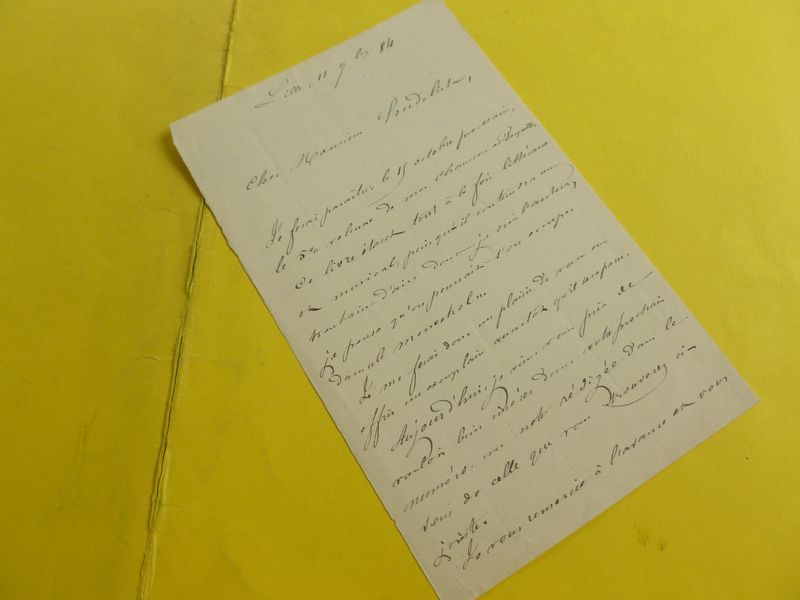 Lille, 11 9bre 84
Cher Monsieur
Je ferai paraître, le 15 octobre prochain,
le 5me volume de mes chansons et
Ce livre étant tout à la fois littéraire
et musical, puisqu'il contiendra une
trentaine d'airs dont je suis l'auteur,
je pense qu'on pourrait s'en occuper
dans le Menestrel.
Je me ferai donc un plaisir de vous en
offrir un exemplaire aussitôt qu'il
Aujourd'hui, je viens vous prier de
vouloir bien insérer, dans votre prochain
numéro, une note rédigée dans le
sens de celle que vous trouverez ci-
jointe.
Je vous remercie à l'avance et vous